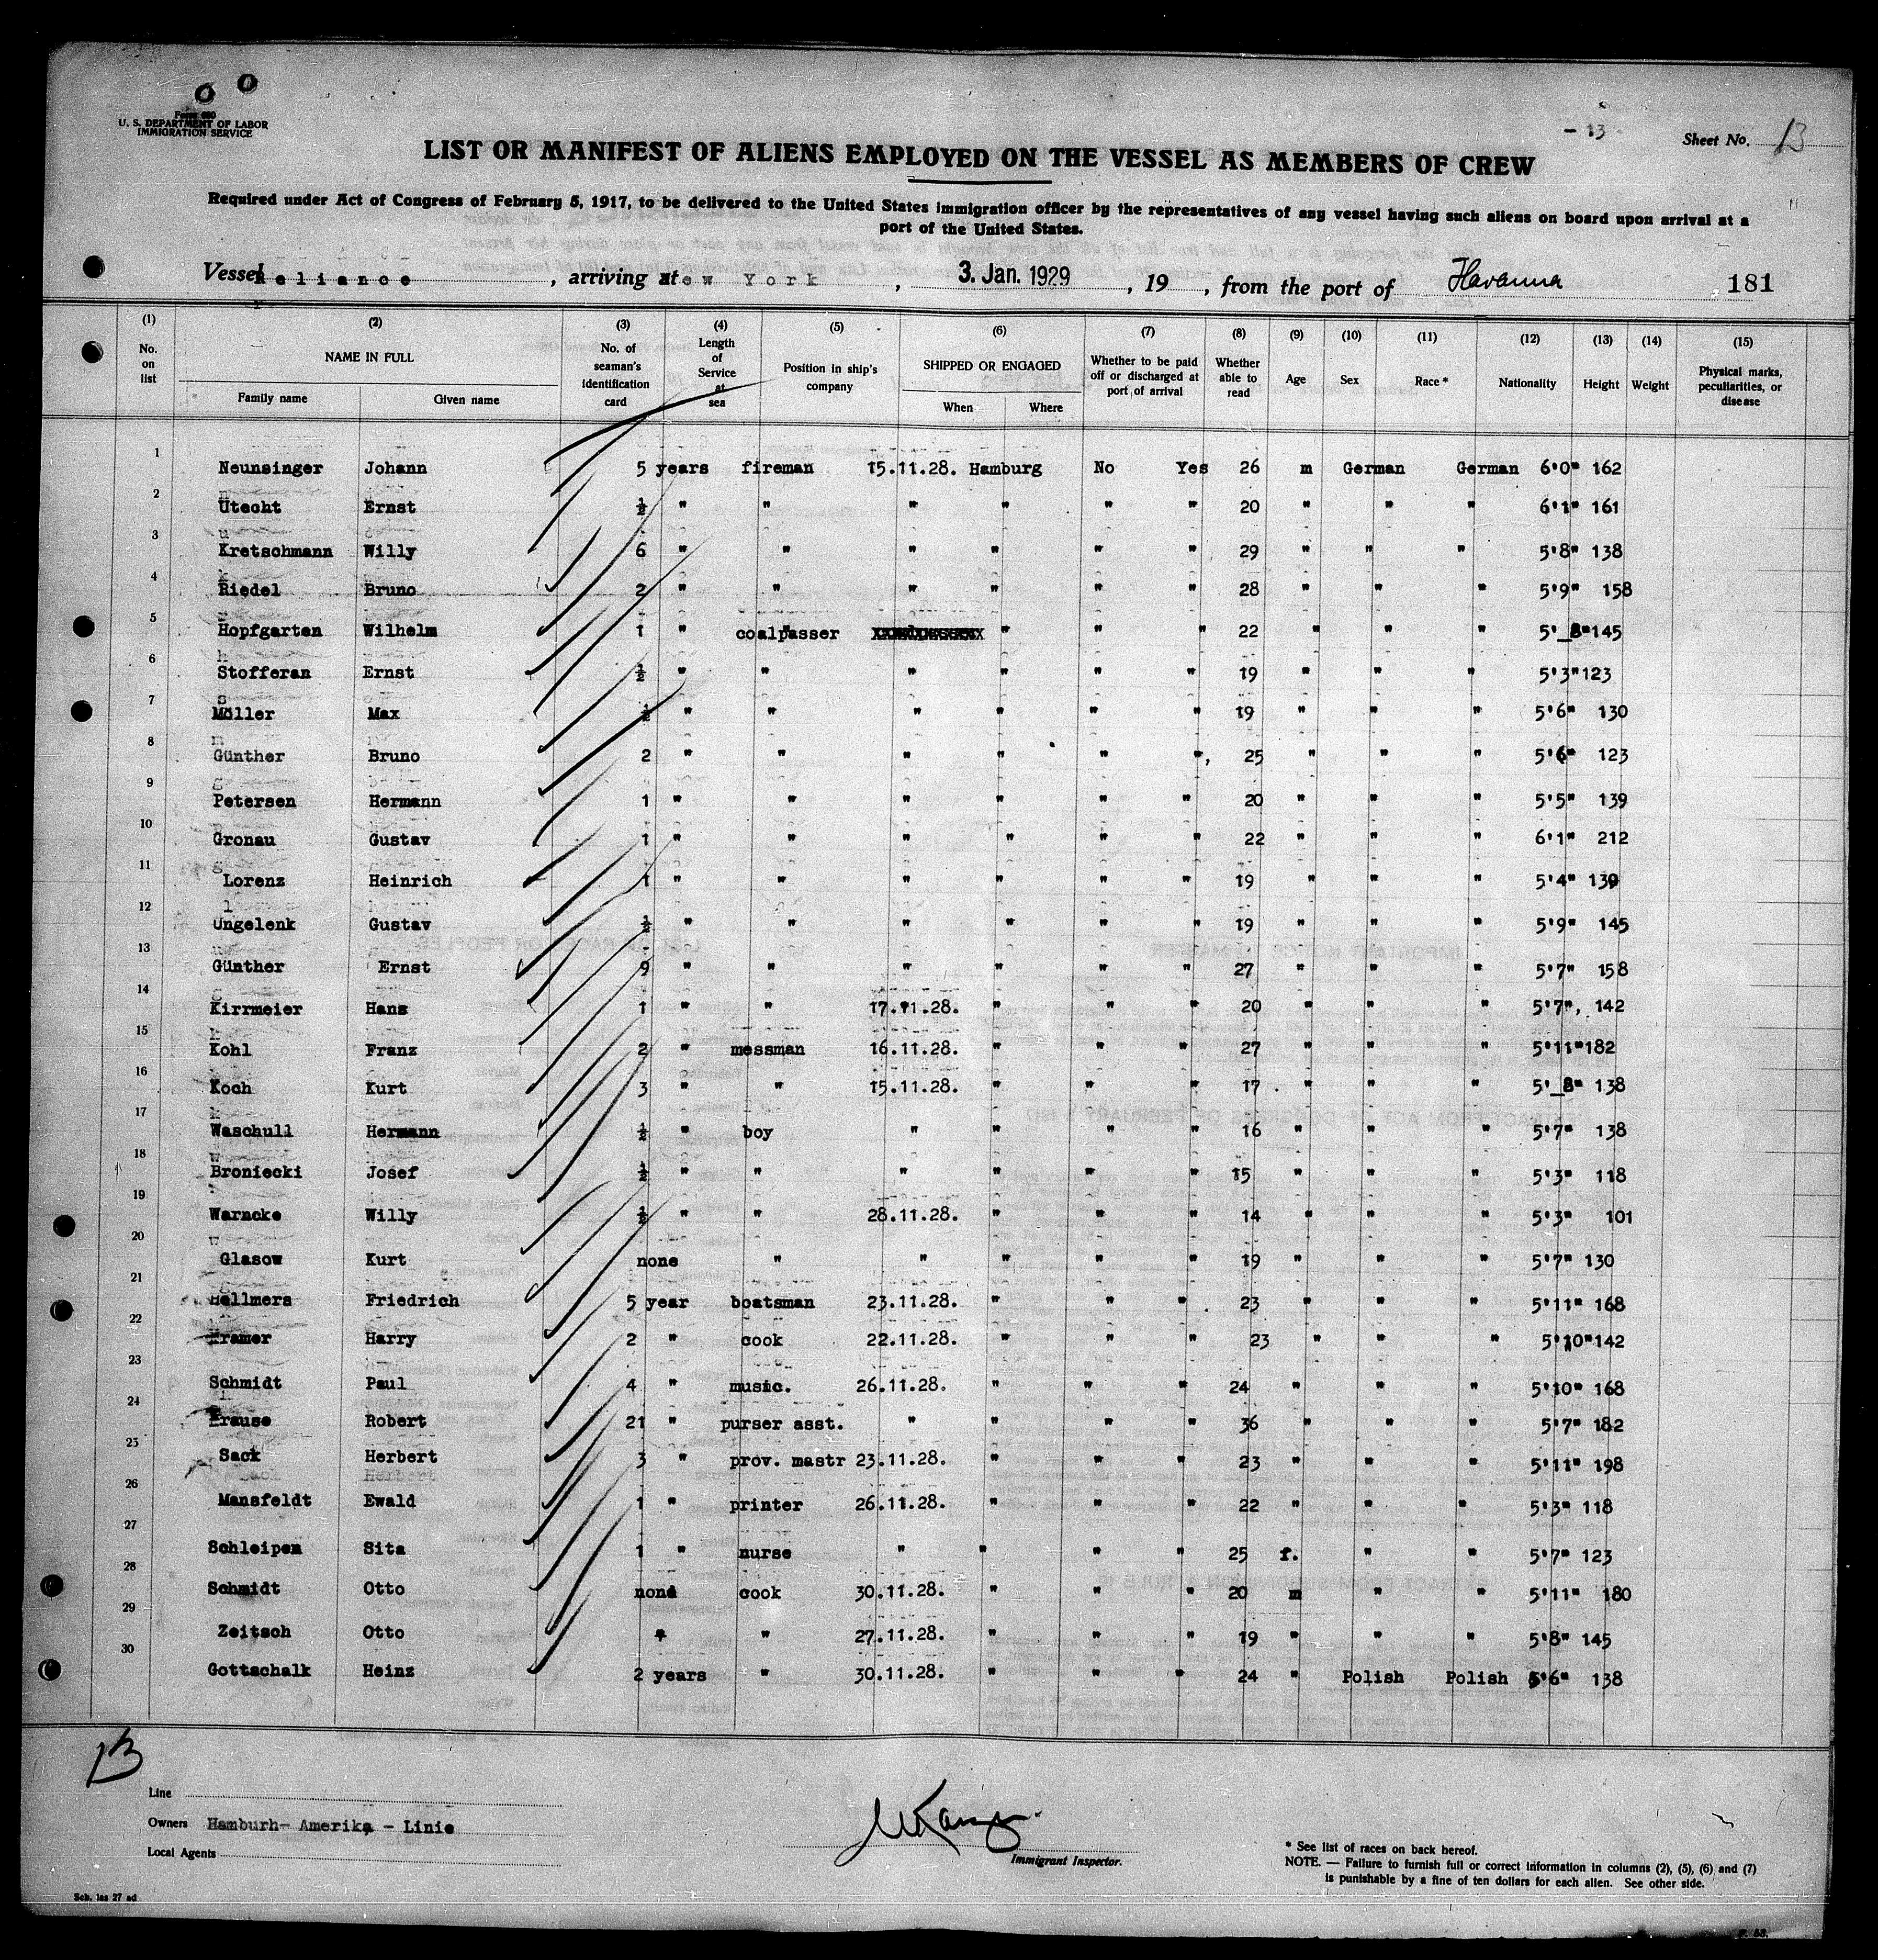 U. S. DEPARTMENT OF LABOR
IMMIGRATION SERVICE
- 13
Sheet No. 13
LIST OR MANIFEST OF ALIENS EMPLOYED ON THE VESSEL AS MEMBERS OF CREW
Required under Act of Congress of February 5, 1917, to be delivered to the United States immigration officer by the representatives of any vessel having such aliens on board upon arrival at a
port of the United States.
Vessel Reliance, arriving at New York, 3. Jan. 1929, 19 , from the port of Havanna 181
(1) (2) (3) (4) (5) (6) (7) (8) (9) (10) (11) (12) (13) (14) (15)
No. on list NAME IN FULL No. of seaman's identification card Length of Service at sea Position in ship's company SHIPPED OR ENGAGED Whether to be paid off or discharged at port of arrival Whether able to read Age Sex Race * Nationality Height Weight Physical marks, peculiarities, or disease
Family name Given name When Where
1 Neunsinger Johann 5 years fireman 15.11.28. Hamburg No Yes 26 m German German 6'0" 162
2 Utecht Ernst ½ " " " " " " 20 " " " 6'1" 161
3 Kretschmann Willy 6 " " " " " " 29 " " " 5'8" 138
4 Riedel Bruno 2 " " " " " " 28 " " " 5'9" 158
5 Hopfgarten Wilhelm 1 " coalpasser " " " 22 " " " 5'_8" 145
6 Stofferan Ernst ½ " " " " " " 19 " " " 5'3" 123
7 Möller Max ½ " " " " " " 19 " " " 5'6" 130
8 Günther Bruno 2 " " " " " ", 25 " " " 5'6" 123
9 Petersen Hermann 1 " " " " " " 20 " " " 5'5" 139
10 Gronau Gustav 1 " " " " " " 22 " " " 6'1" 212
11 Lorenz Heinrich 1 " " " " " " 19 " " " 5'4" 139
12 Ungelenk Gustav ½ " " " " " " 19 " " " 5'9" 145
13 Günther Ernst 9 " " " " " " 27 " " " 5'7" 158
14 Kirrmeier Hans 1 " " 17.11.28. " " " 20 " " " 5'7", 142
15 Kohl Franz 2 " messman 16.11.28. " " " 27 " " " 5'11" 182
16 Koch Kurt 3 " " 15.11.28. " " " 17 . " " " 5'_8" 138
17 Waschull Hermann ½ " boy " " " " 16 " " " 5'7" 138
18 Broniecki Josef ½ " " " " " " 15 " " " 5'3" 118
19 Warncke Willy ½ " " 28.11.28. " " " 14 " " " 5'3" 101
20 Glasow Kurt none " " " " " 19 " " " 5'7" 130
21 Hellmers Friedrich 5 year boatsman 23.11.28. " " " 23 " " " 5'11" 168
22 Kramer Harry 2 " cook 22.11.28. " " " 23 " " " 5'10" 142
23 Schmidt Paul 4 " music. 26.11.28. " " " 24 " " " 5'10" 168
24 Krause Robert 21 " purser asst. " " " " 36 " " " 5'7" 182
25 Sack Herbert 3 " prov. mastr 23.11.28. " " " 23 " " " 5'11" 198
26 Mansfeldt Ewald 1 " printer 26.11.28. " " " 22 " " " 5'3" 118
27 Schleipen Sita 1 " nurse " " " " 25 f. " " 5'7" 123
28 Schmidt Otto none cook 30.11.28. " " " 20 m " " 5'11" 180
29 Zeitsch Otto " " 27.11.28. " " " 19 " " " 5'8" 145
30 Gottschalk Heinz 2 years " 30.11.28. " " " 24 " Polish Polish 5'6" 138
13
Line
Owners Hamburh- Amerika - Linie
Local Agents
Immigrant Inspector.
* See list of races on back hereof.
NOTE. — Failure to furnish full or correct information in columns (2), (5), (6) and (7)
is punishable by a fine of ten dollars for each alien. See other side.